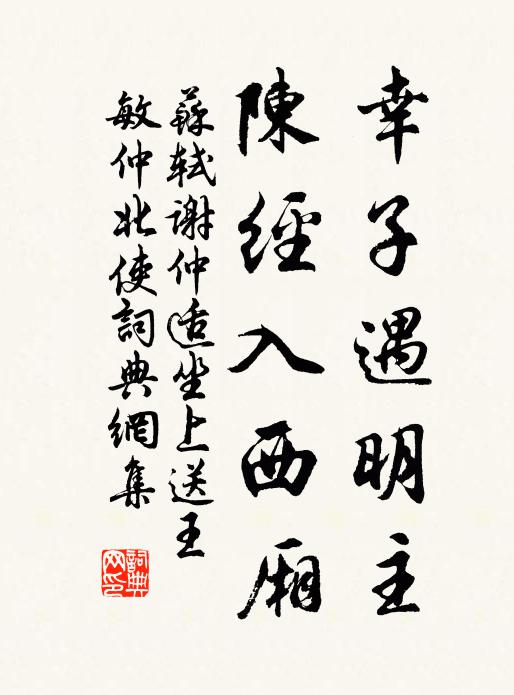 幸子遇明主
陳經入西廂
蘇軾謝仲适坐上送王
敏仲北使詞典網集
詞典网印